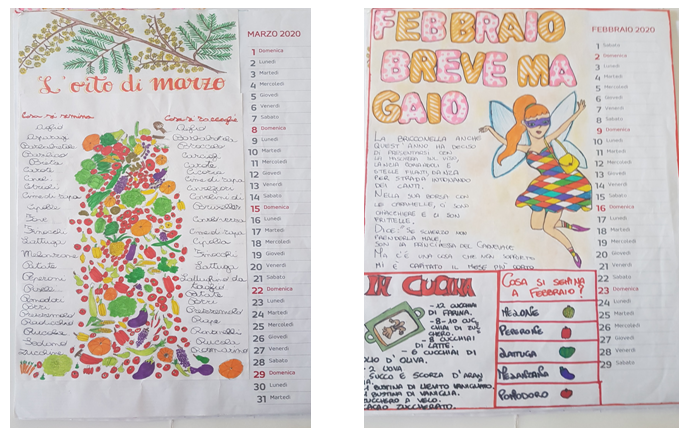 MARZO 2020
L'orto di marzo
Cosa si semina
Cosa si raccoglie
Aglio
Basilico
Bieta
Carote
Cavoli
Cetrioli
Cime di rapa
Cipolle
Fave
Finocchi
Lattuga
Melanzane
Patate
Peperoni
Piselli
Pomodori
Porri
Prezzemolo
Radicchio
Rucola
Sedano
Zucchine
Aglio
Barbabietole
Carciofi
Carote
Cicoria
Cime di rapa
Cavolfiori
Cavolini di
Bruxelles
Cime di rapa
Cipolla
Finocchi
Lattuga
Patate
Porri
Prezzemolo
Rape
Ravanelli
Rucola
1 Domenica
2 Lunedì
3 Martedì
4 Mercoledì
5 Giovedì
6 Venerdì
7 Sabato
8 Domenica
9 Lunedì
10 Martedì
11 Mercoledì
12 Giovedì
13 Venerdì
14 Sabato
15 Domenica
16 Lunedì
17 Martedì
18 Mercoledì
19 Giovedì
20 Venerdì
21 Sabato
22 Domenica
23 Lunedì
24 Martedì
25 Mercoledì
26 Giovedì
27 Venerdì
28 Sabato
29 Domenica
30 Lunedì
31 Martedì
FEBBRAIO
BREVE MA
GAIO
FEBBRAIO 2020
1 Sabato
2 Domenica
3 Lunedì
4 Martedì
5 Mercoledì
6 Giovedì
7 Venerdì
8 Sabato
9 Domenica
10 Lunedì
11 Martedì
12 Mercoledì
13 Giovedì
14 Venerdì
15 Sabato
16 Domenica
17 Lunedì
18 Martedì
19 Mercoledì
20 Giovedì
21 Venerdì
22 Sabato
23 Domenica
24 Lunedì
25 Martedì
26 Mercoledì
27 Giovedì
28 Venerdì
29 Sabato
LA BRICCONCELLA ANCHE
QUEST'ANNO HA DECISO
DI PRESENTARSI CON
LA MASCHERA SUL VISO,
LANCIA CORIANDOLI E
STELLE FILANTI, DANZA
PER STRADA INTONANDO
DEI CANTI.
NELLA SUA BORSA CON
LE CARAMELLE CI SONO
CHIACCHIERE E DI BUON
FRITTELLE.
DICE: "SE SCHERZO NON
PRENDERLA MALE,
SON LA PRINCIPESSA DEL CARNEVALE
MA C'È UNA COSA CHE NON SOPPORTO
MI È CAPITATO IL MESE PIÙ CORTO
IN CUCINA
- 12 CUCCHIAI
DI FARINA.
- 8-10 CUC
CHIAI DI ZUC
CHERO.
- 8 CUCCHIAI
DI LATTE.
- 6 CUCCHIAI DI
LIO D'OLIVA.
- 2 UOVA
SUCCO E SCORZA D'ARAN
IA.
1 BUSTINA DI LIEVITO VANIGLIATO.
1 BUSTINA DI VANIGLIA.
ZUCCHERO A VELO.
CACAO ZUCCHERATO.
COSA SI SEMINA
A FEBBRAIO?
MELONE
PEPERONE
LATTUGA
MELANZANA
POMODORO